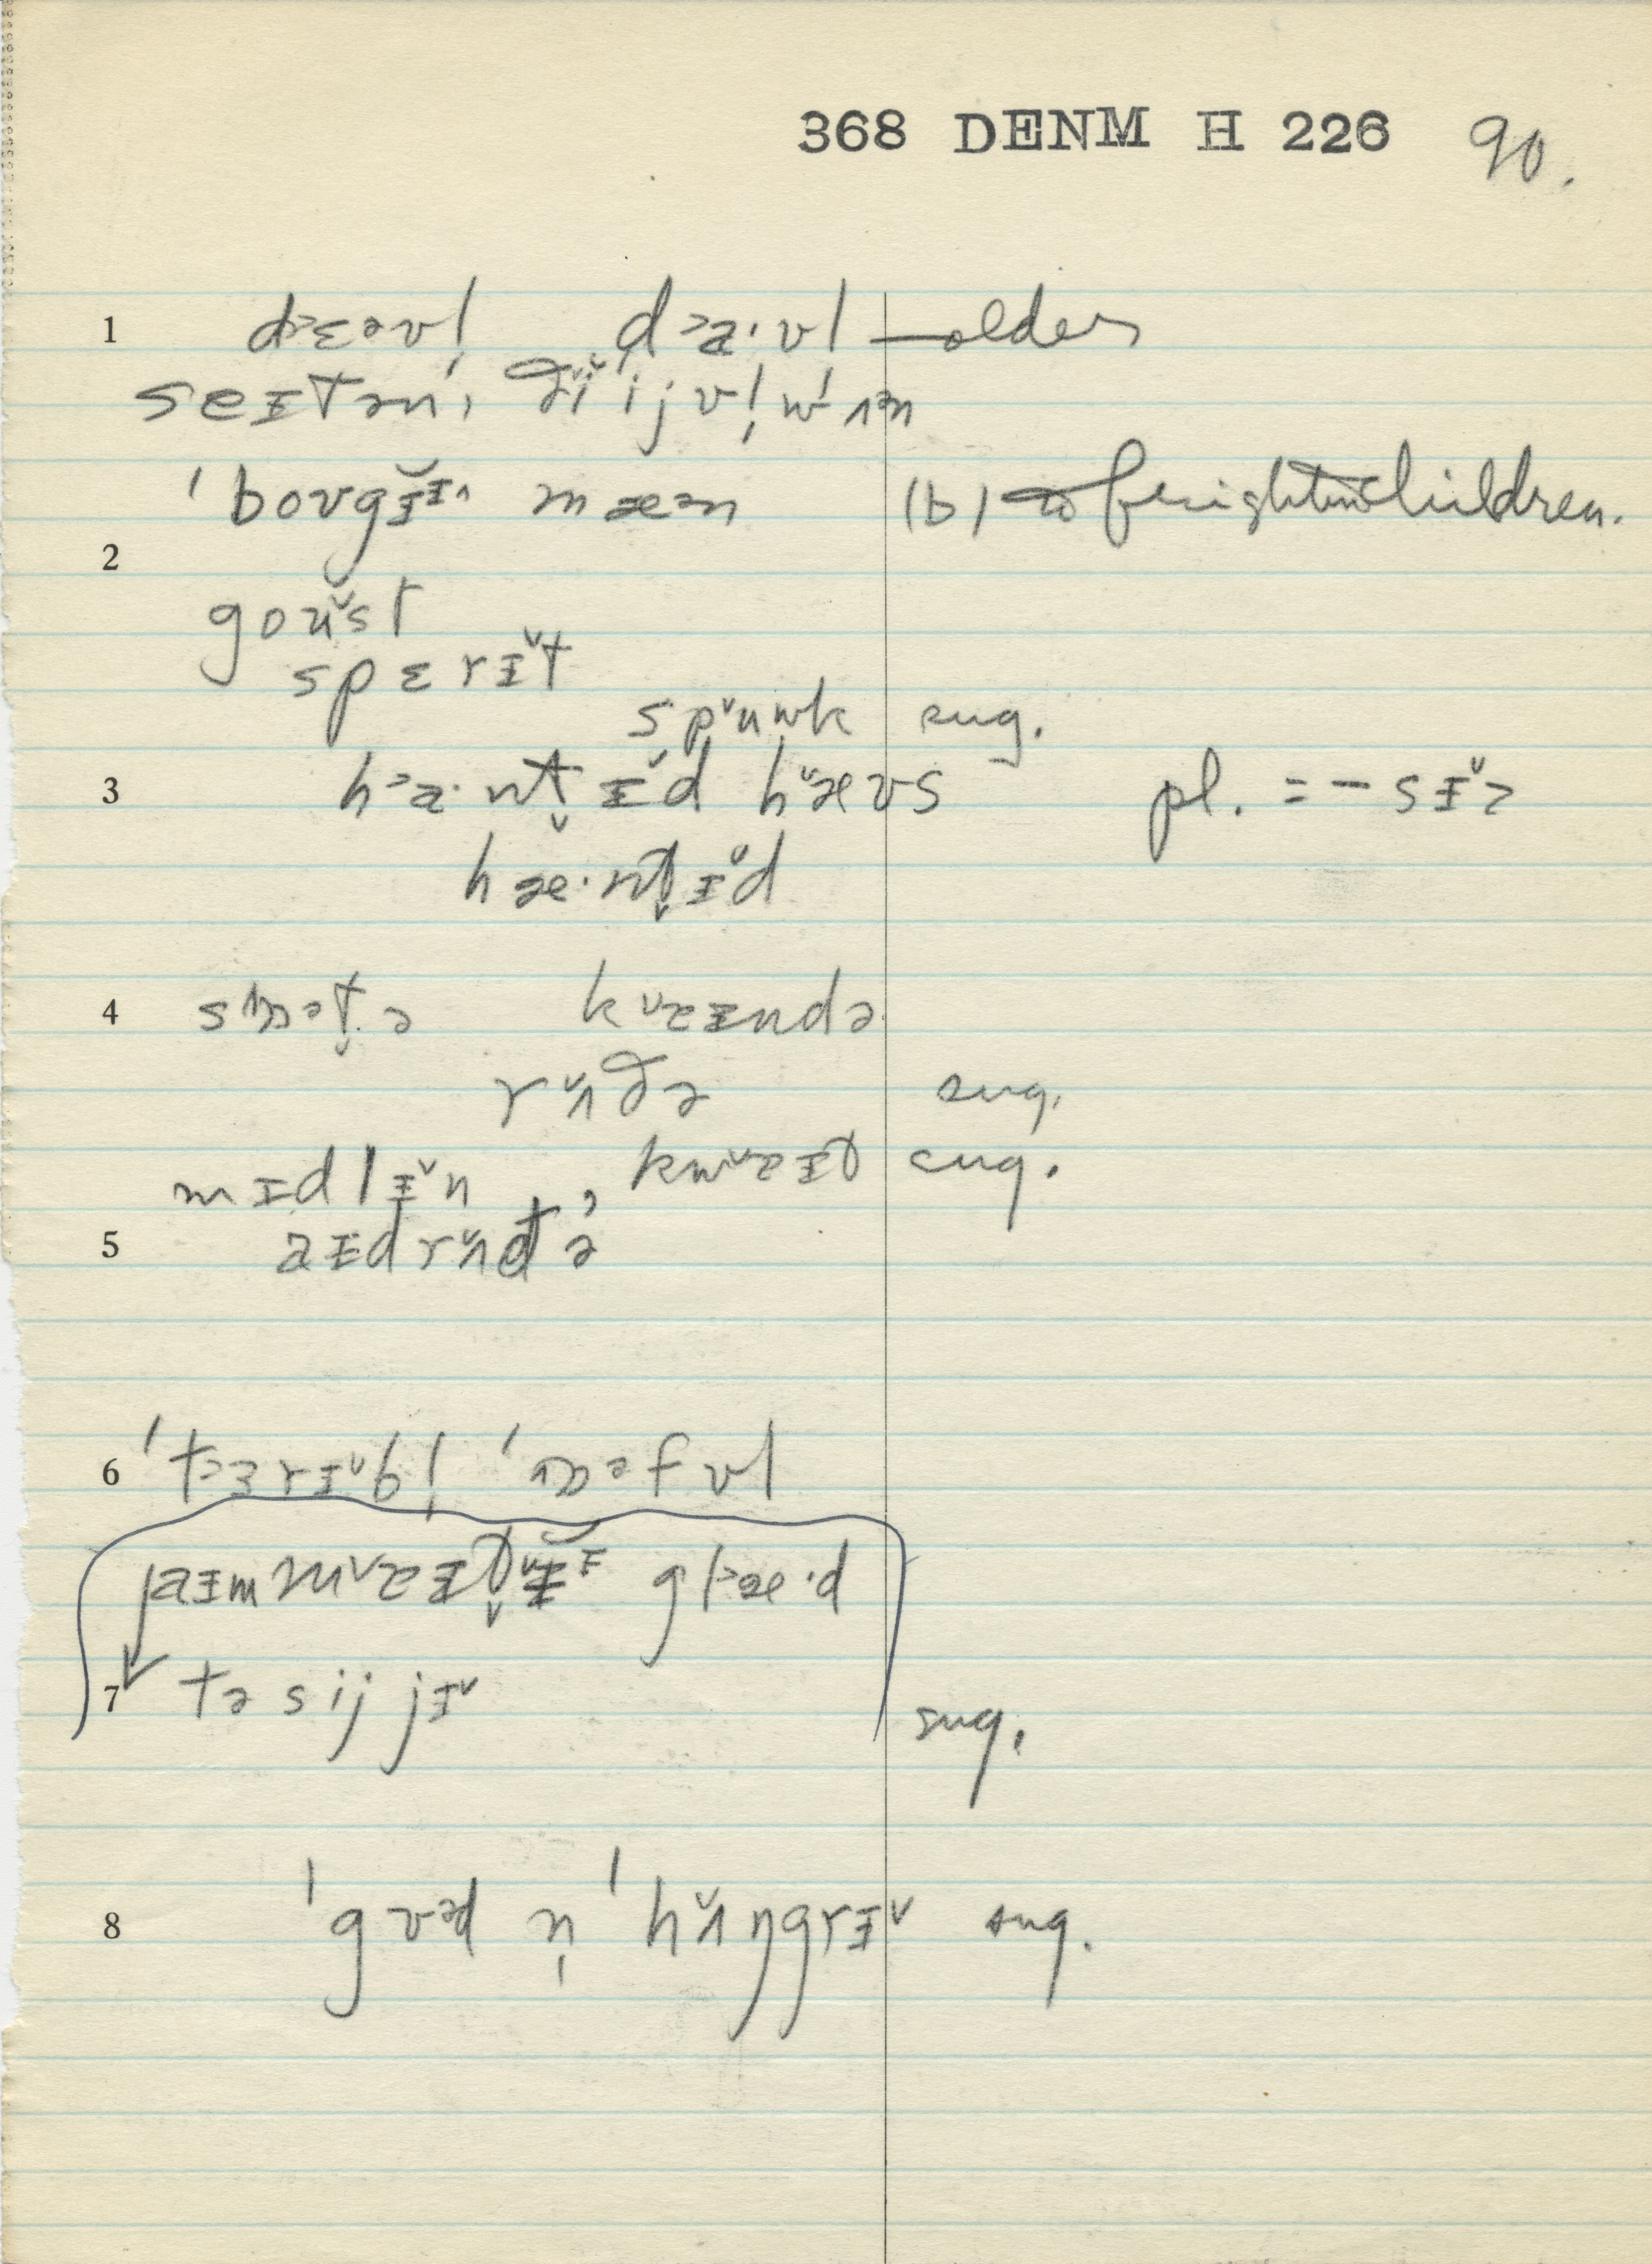 368 DENM H 226 90.
1 dɛəvl̩ da·vl — older
seɪtən, ði ijvl̩ wʌn
ˈbovgɨ mæn (b) to frighten children.
2
goust
spɛrɨt
spuwk sug.
3 ha·nt̬ɨd hæʊs pl. = -sɨz
hæ·nt̬ɨd
4 smɒət̬ə kaɨndə
rʌðə sug.
mɪdlɨn, kwaɨt sug.
5 aɨdrʌðə
6 ˈtɜrɨbl̩ ˈɒəfʊl
7 aɨm maɨt̬ɨ glæ·d
tə sij jɨ sug.
8 ˈgʊəd n̩ ˈhʌŋgrɨ sug.